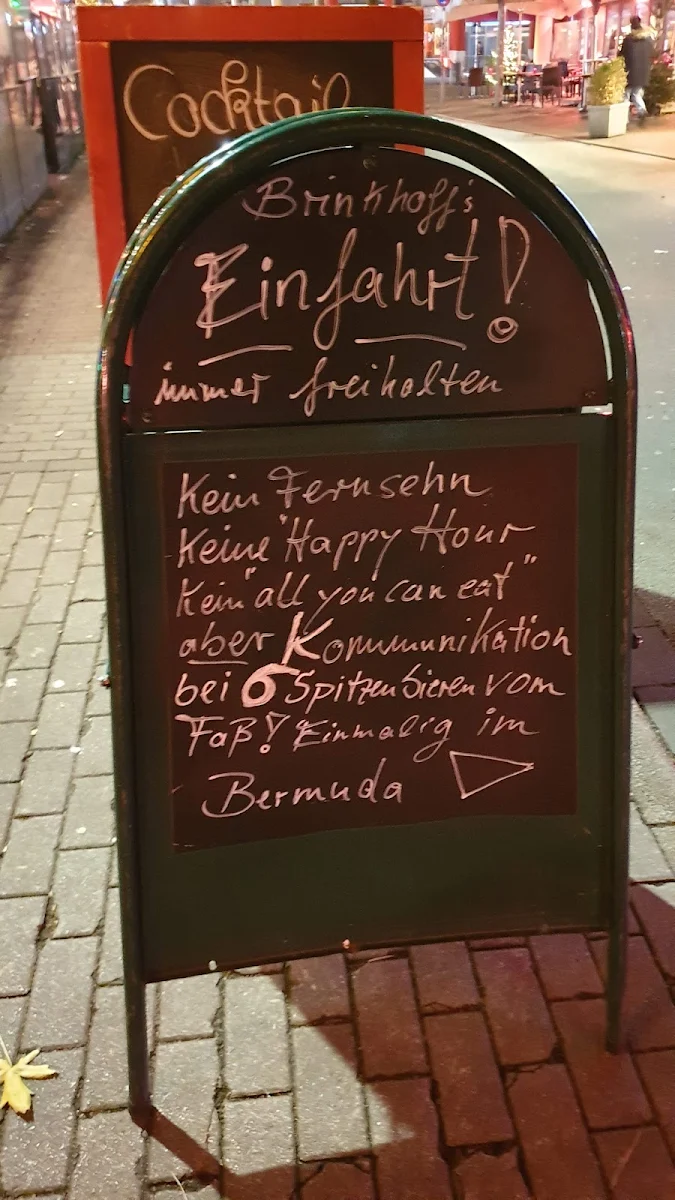 Cocktail
Brinkhoff's
Einfahrt!
immer freihalten
Kein Fernsehn
Keine "Happy Hour
Kein "all you can eat"
aber Kommunikation
bei 6 Spitzenbieren vom
Faß! Einmalig im
Bermuda